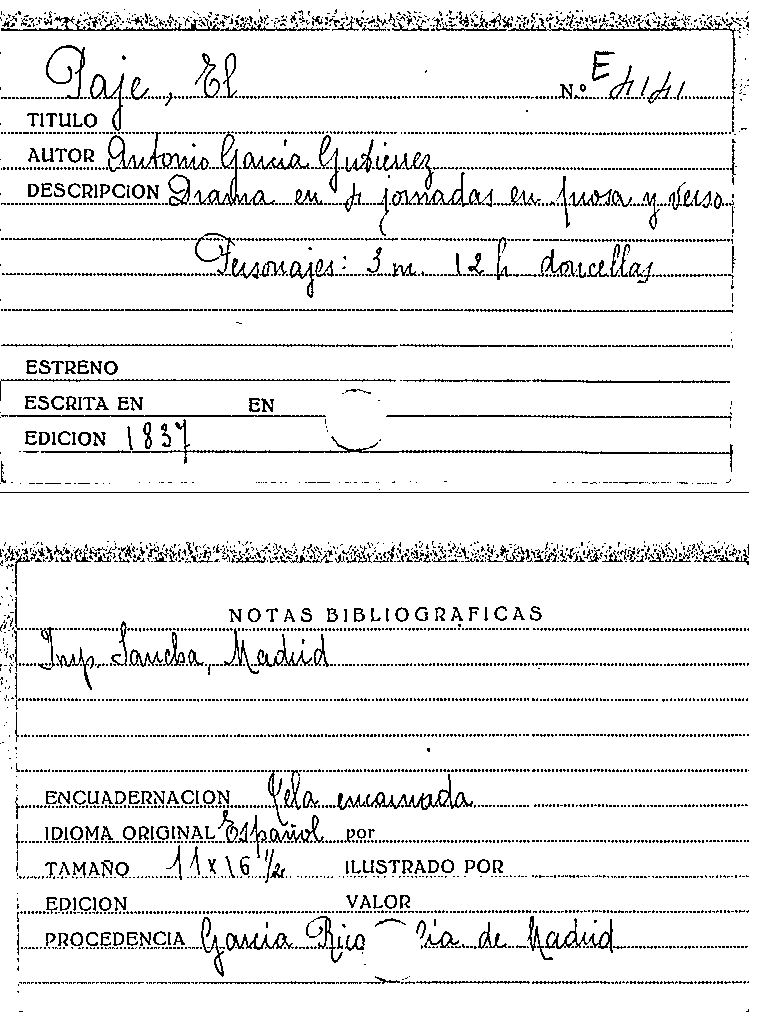 Paje, El
N.º E 4141
TITULO
AUTOR Antonio García Gutiérrez
DESCRIPCION Drama en 4 jornadas en prosa y verso
Personajes: 3 m. 12 h doncellas
ESTRENO
ESCRITA EN EN
EDICION 1837
NOTAS BIBLIOGRAFICAS
Imp. Sancha, Madrid
ENCUADERNACION Tela encarnada
IDIOMA ORIGINAL Español por
TAMAÑO 11 x 16 1/2 ILUSTRADO POR
EDICION VALOR
PROCEDENCIA García Rico de Madrid